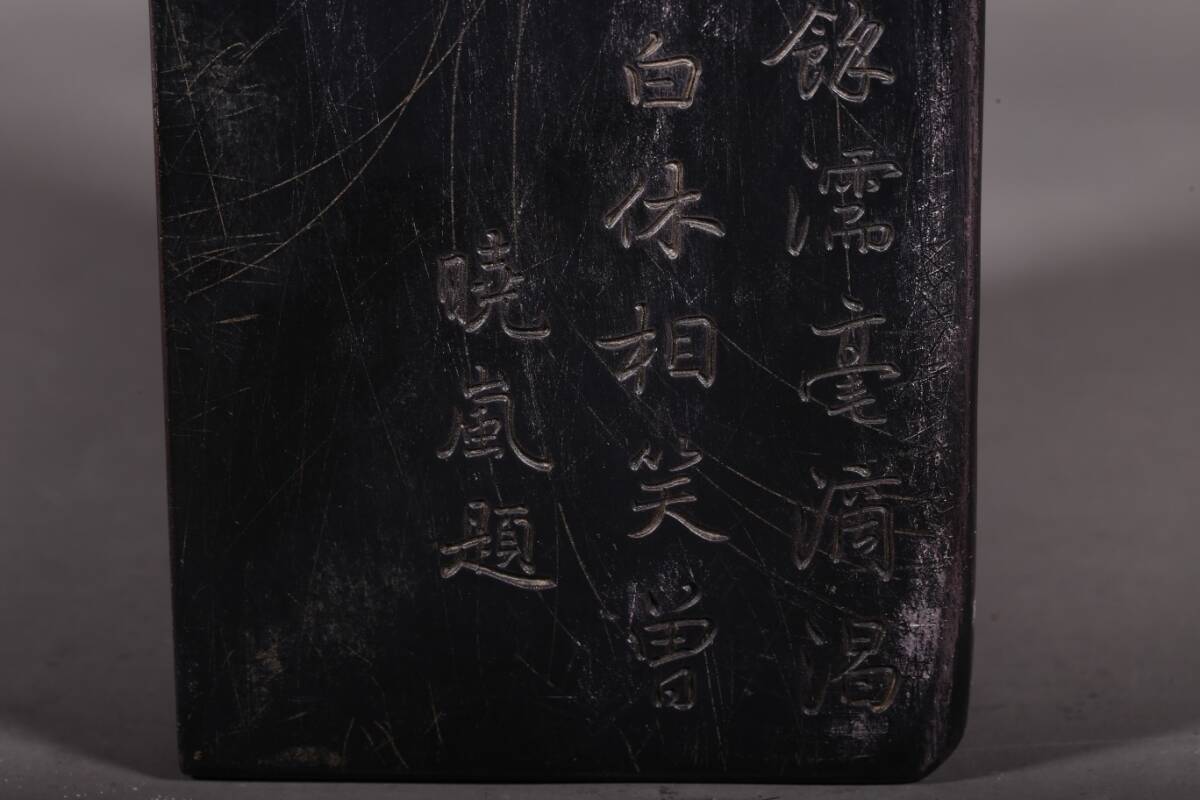 濡毫滴渴
白休相笑曾
曉嵐題